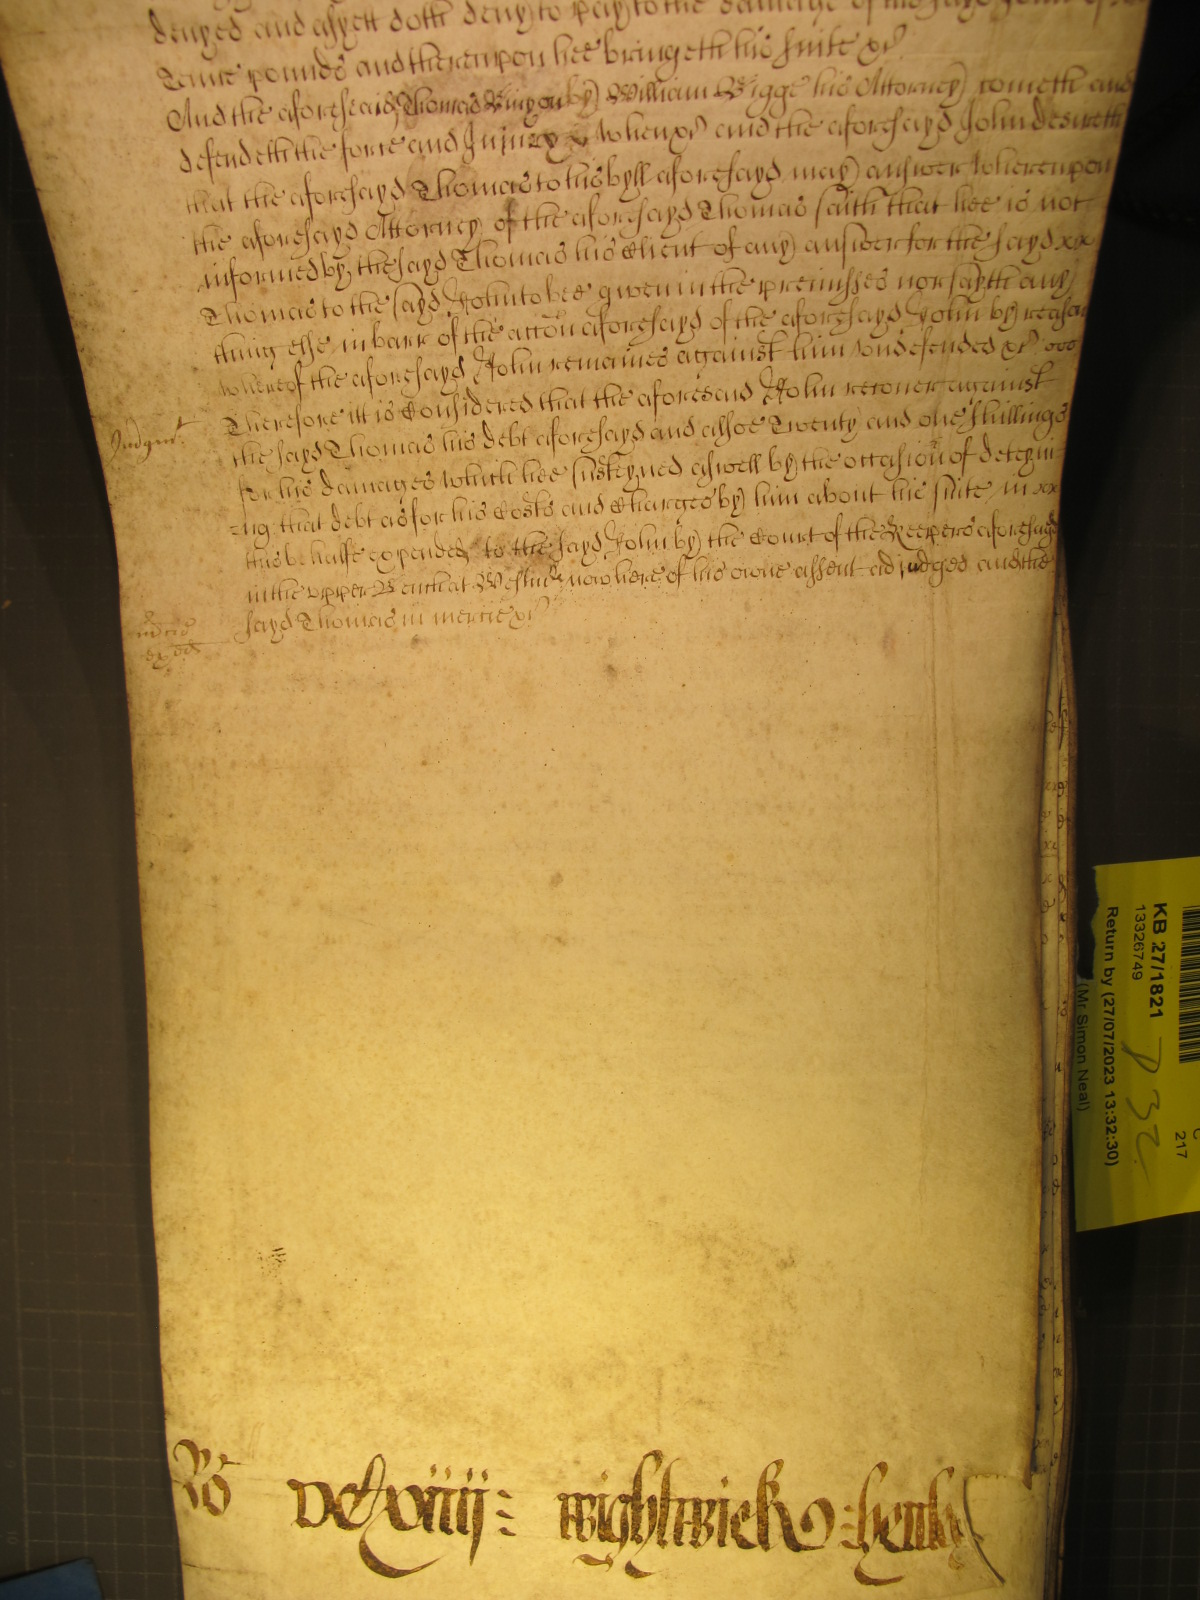 denyed and asyett doth deny to pay to the damage of the sayd John of
Tenne pounds and thereupon hee bringeth his suite &c
And the aforesaid Thomas by William Wigge his Attorney cometh and
defendeth the force and Injury when &c and the aforesayd John desireth
that the aforesayd Thomas to his byll aforesayd may answer Whereupon
the aforesayd Attorney of the aforesayd Thomas saith that hee is not
informed by the sayd Thomas his Client of any answer for the sayd xx
Thomas to the sayd John to bee given in the premisses nor sayth any
thing else in barr of the accōn aforesayd of the aforesayd John by reason
whereof the aforesayd John remaines against him undefended &c
Judgmt
Therefore itt is Considered that the aforesaid John recover against
the sayd Thomas his debt aforesayd and alsoe Twenty and one Shillings
for his damages which hee susteyned aswell by the occasiōn of deteyni
=ng that debt as for his Costs and Charges by him about his suite in xx
this behalfe expended to the sayd John by the Court of the Keepers aforesayd
in the upper Bench at Westmr now here of his owne assent adjudged and the
sayd Thomas in mercie &c
mcie
Ro
wightwick : henly
KB 27/1821
13326749
Return by (27/07/2023 13:32:30)
(Mr Simon Neal)
217